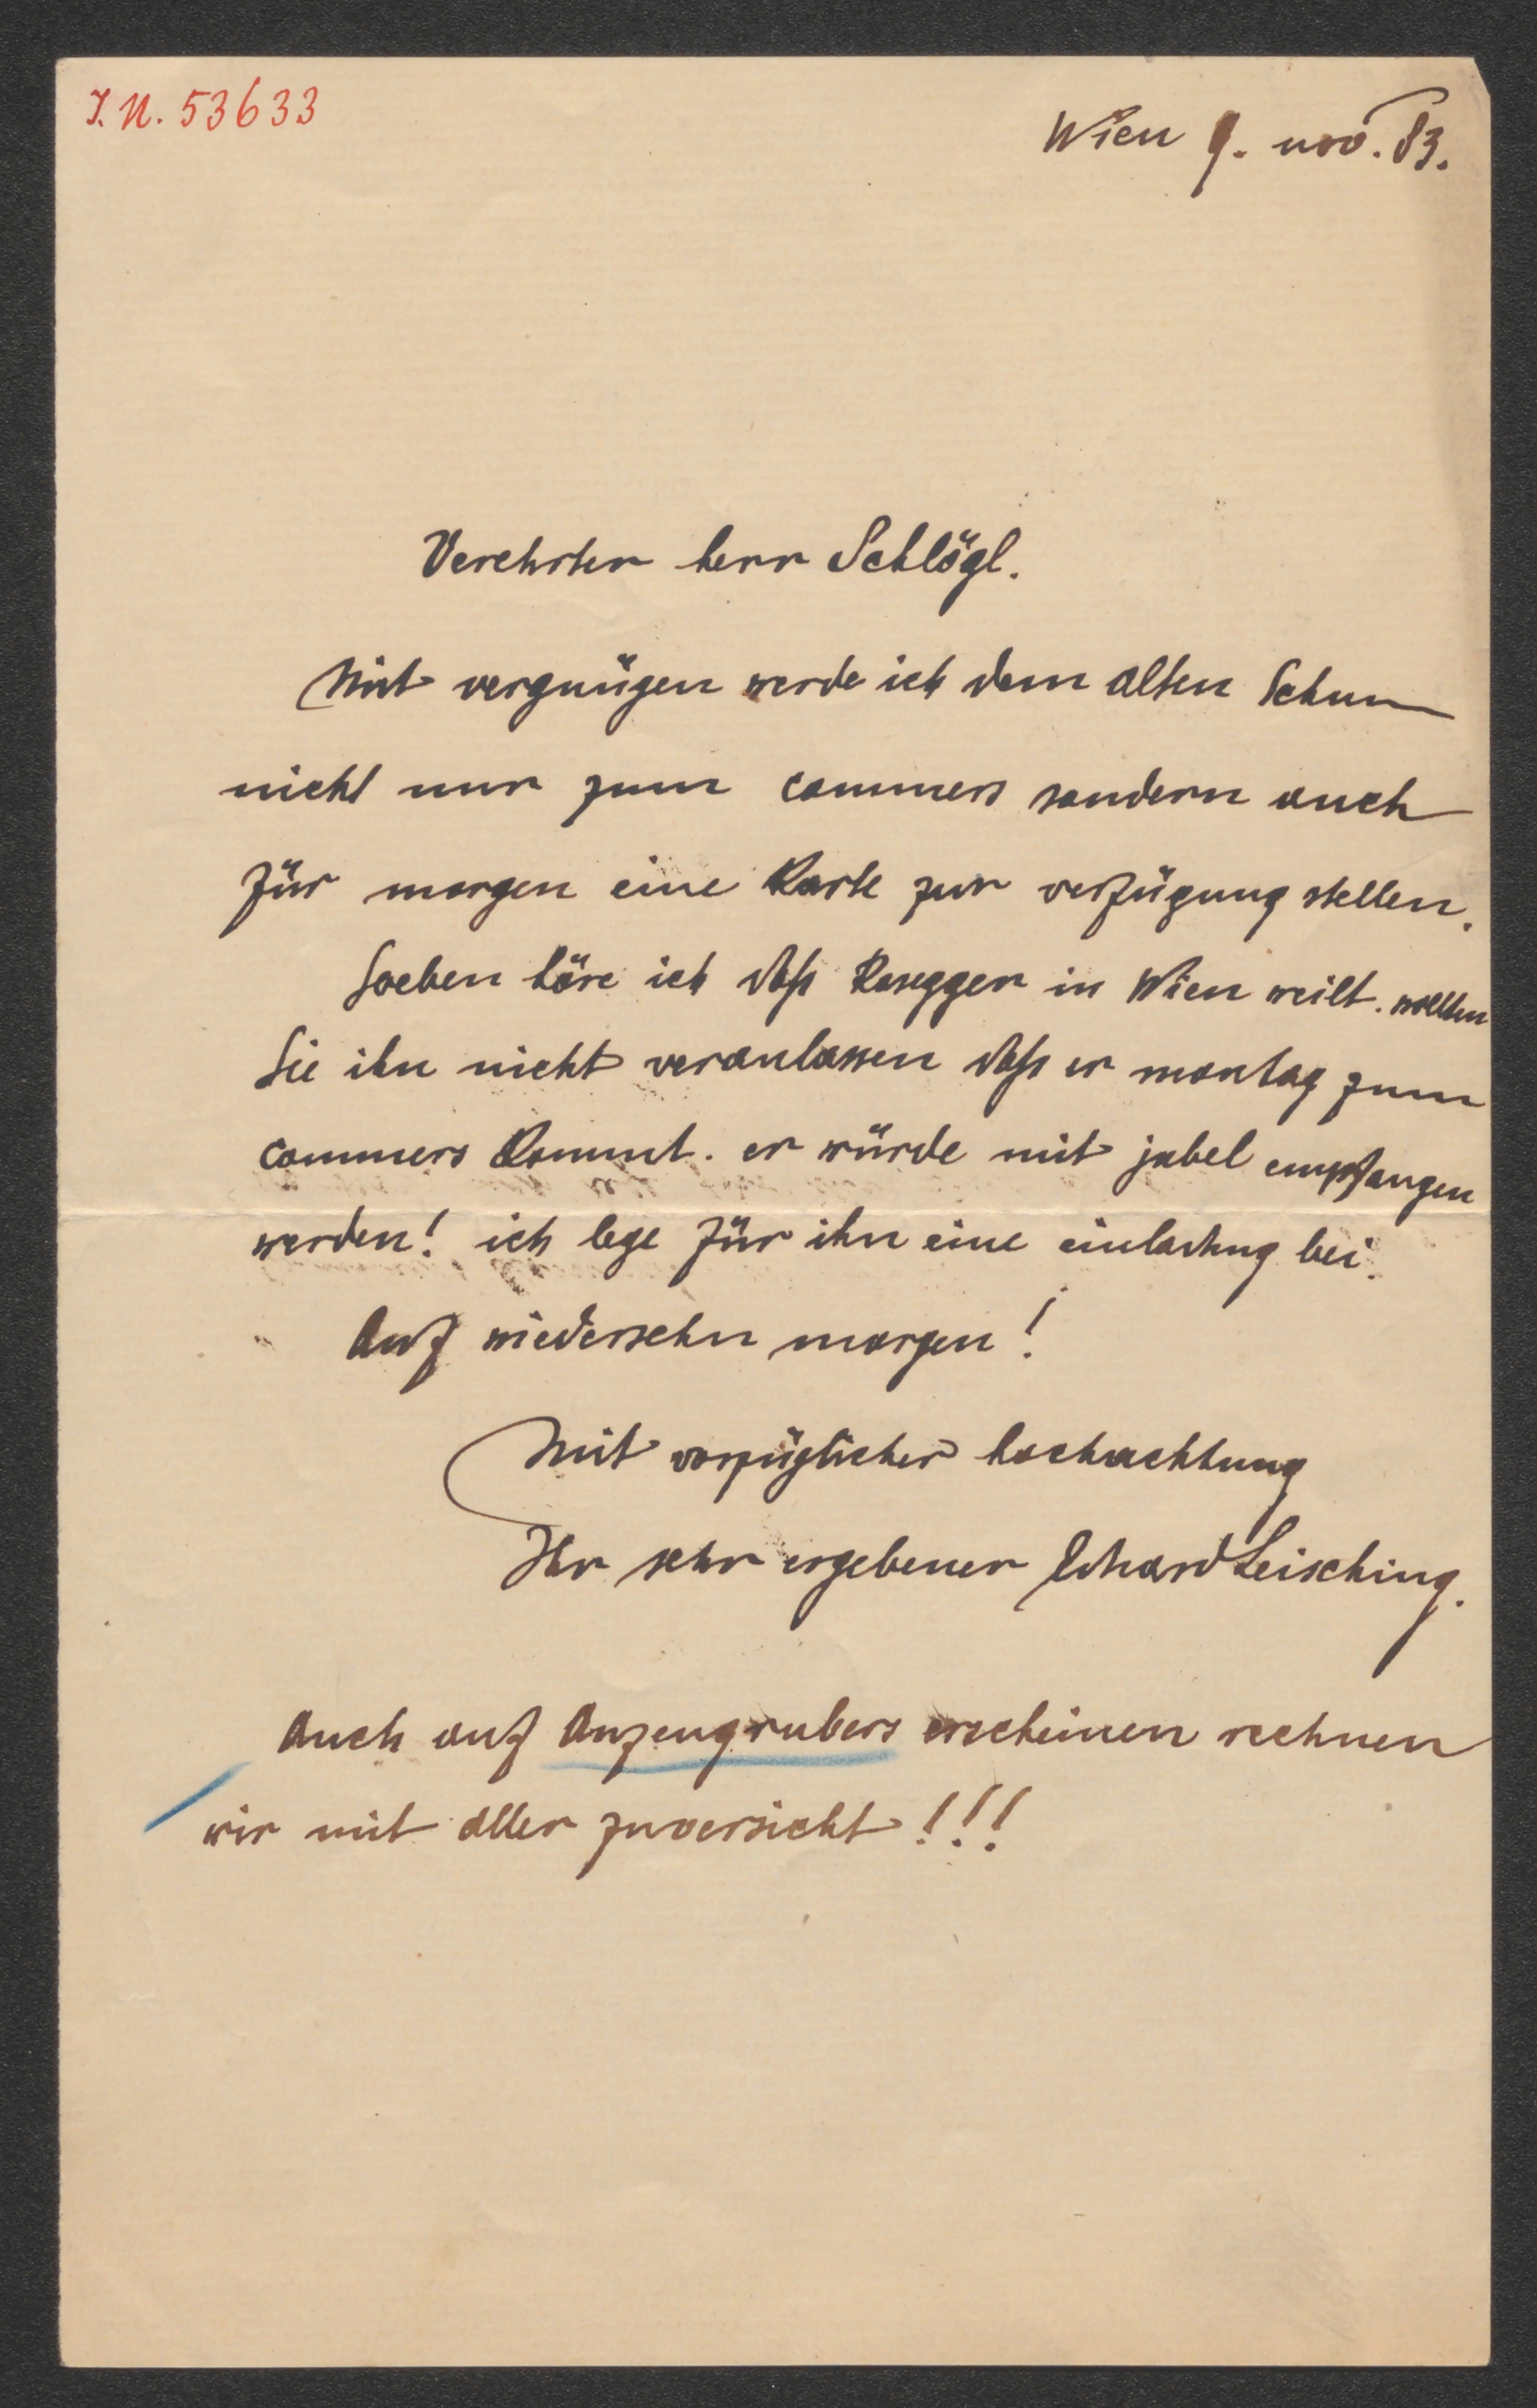 I. N. 53633
Wien 9. nov. 83.
Verehrter herr Schlögl.
Mit vergnügen werde ich dem alten Schum
nicht nur zum commers sondern auch
für morgen eine Karte zur verfügung stellen.
Soeben höre ich daß Rosegger in Wien weilt. wollten
Sie ihn nicht veranlassen daß er montag zum
commers kommt. er würde mit jubel empfangen
werden! ich lege für ihn eine einladung bei.
Auf wiedersehn morgen!
Mit vorzüglicher hochachtung
Ihr sehr ergebener Eduard Leisching.
Auch auf Anzengrubers erscheinen rechnen
wir mit aller zuversicht!!!